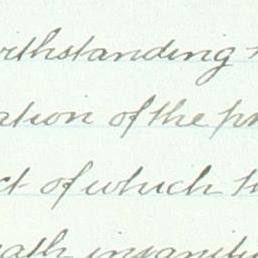 orthstanding
ation of the pr
ct of which t
eath insanity